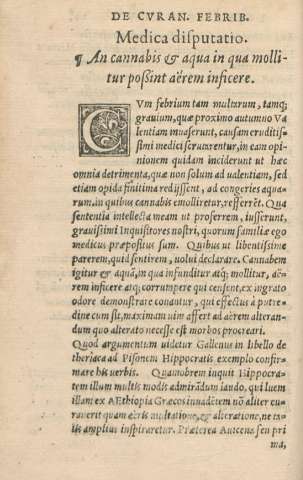 DE CVRAN. FEBRIB.
Medica disputatio.
¶ An cannabis & aqua in qua molli-
tur possint aërem inficere.
CVm febrium tam multarum, tamq;
grauium, quæ proximo autumno Va
lentiam inuaserunt, causam eruditis-
simi medici scrutarentur, in eam opi-
nionem quidam inciderunt ut hæc
omnia detrimenta, quæ non solum ad ualentiam, sed
etiam opida finitima redijssent, ad congeries aqua-
rum, in quibus cannabis emolliretur, referrēt. Qua
sententia intellecta meam ut proferrem, iusserunt,
grauissimi Inquisitores nostri, quorum familiæ ego
medicus præpositus sum. Quibus ut libentissime
parerem, quid sentirem, uolui declarare. Cannabem
igitur & aquā, in qua infunditur atq; mollitur, aë-
rem inficere atq; corrumpere qui censent, ex ingrato
odore demonstrare conantur, qui effectus à putre-
dine cum sit, maximam uim affert ad aërem alteran-
dum quo alterato necesse est morbos procreari.
Quod argumentum uidetur Gallenus in libello de
theriaca ad Pisonem Hippocratis exemplo confir-
mare his uerbis. Quamobrem inquit Hippocra-
tem illum multis modis admirādum laudo, qui luem
illam ex AEthiopia Græcos inuadētem nō aliter cu-
rauerit quam aëris mutatione, & alteratione, ne ta-
lis amplius inspiraretur. Præterea Auicena sen pri
ma,